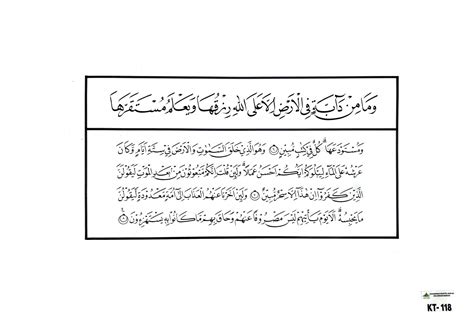 وَمَا مِنْ دَآبَّةٍ فِي الْأَرْضِ إِلَّا عَلَى اللهِ رِزْقُهَا وَيَعْلَمُ مُسْتَقَرَّهَا
وَمُسْتَوْدَعَهَا كُلٌّ فِي كِتٰبٍ مُبِينٍ ۝ وَهُوَ الَّذِي خَلَقَ السَّمٰوٰتِ وَالْأَرْضَ فِي سِتَّةِ أَيَّامٍ وَكَانَ
عَرْشُهُ عَلَى الْمَاءِ لِيَبْلُوَكُمْ أَيُّكُمْ أَحْسَنُ عَمَلًا وَلَئِنْ قُلْتَ إِنَّكُمْ مَبْعُوثُونَ مِنْ بَعْدِ الْمَوْتِ لَيَقُولَنَّ
الَّذِينَ كَفَرُوا إِنْ هٰذَا إِلَّا سِحْرٌ مُبِينٌ ۝ وَلَئِنْ أَخَّرْنَا عَنْهُمُ الْعَذَابَ إِلَى أُمَّةٍ مَعْدُودَةٍ لَيَقُولُنَّ
مَا يَحْبِسُهُ أَلَا يَوْمَ يَأْتِيهِمْ لَيْسَ مَصْرُوفًا عَنْهُمْ وَحَاقَ بِهِمْ مَا كَانُوا بِهِ يَسْتَهْزِءُونَ ۝
KT- 118